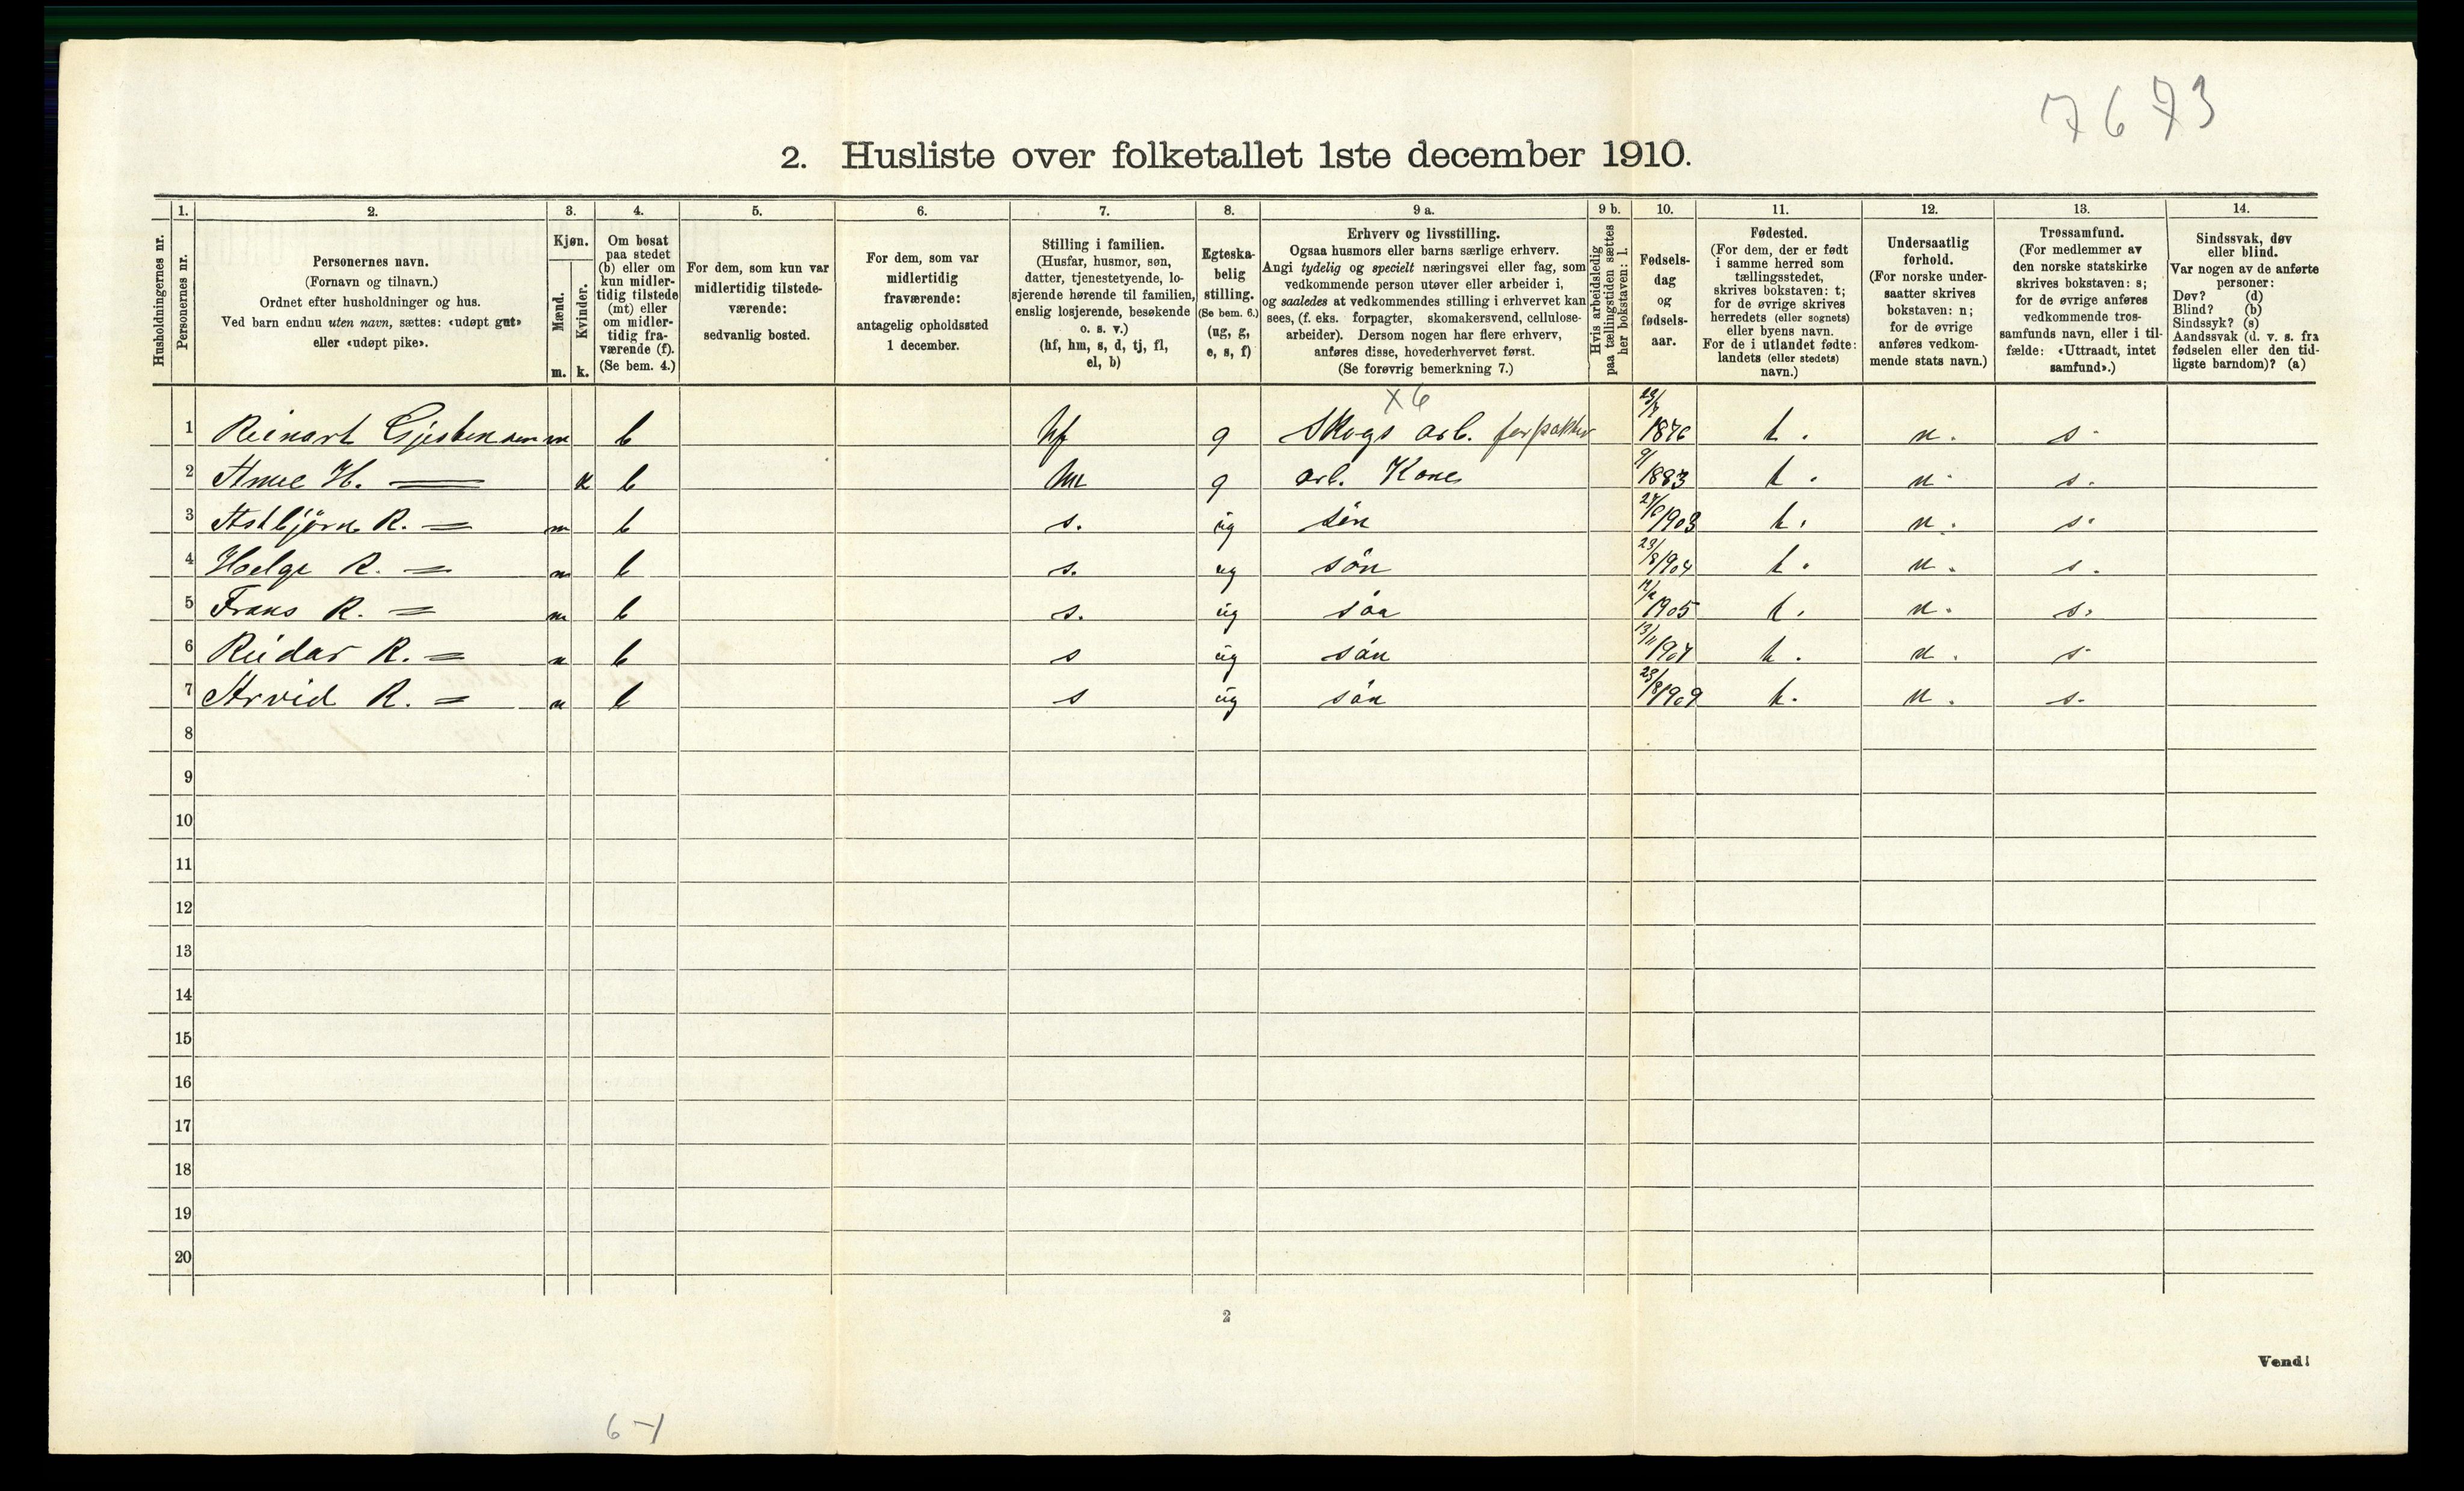 7673
2. Husliste over folketallet 1ste december 1910.
Husholdningernes nr.
1. 2. 3. 4. 5. 6. 7. 8. 9 a. 9 b. 10. 11. 12. 13. 14.
Personernes nr.
Personernes navn.
(Fornavn og tilnavn.)
Ordnet efter husholdninger og hus.
Ved barn endnu uten navn, sættes: «udøpt gut»
eller «udøpt pike».
Kjøn.
Mænd.
Kvinder.
m. k.
Om bosat
paa stedet
(b) eller om
kun midler-
tidig tilstede
(mt) eller
om midler-
tidig fra-
værende (f).
(Se bem. 4.)
For dem, som kun var
midlertidig tilstede-
værende:
sedvanlig bosted.
For dem, som var
midlertidig
fraværende:
antagelig opholdssted
1 december.
Stilling i familien.
(Husfar, husmor, søn,
datter, tjenestetyende, lo-
sjerende hørende til familien,
enslig losjerende, besøkende
o. s. v.)
(hf, hm, s, d, tj, fl,
el, b)
Egteska-
belig
stilling.
(Se bem. 6.)
(ug, g,
e, s, f)
Erhverv og livsstilling.
Ogsaa husmors eller barns særlige erhverv.
Angi tydelig og specielt næringsvei eller fag, som
vedkommende person utøver eller arbeider i,
og saaledes at vedkommendes stilling i erhvervet kan
sees, (f. eks. forpagter, skomakersvend, cellulose-
arbeider). Dersom nogen har flere erhverv,
anføres disse, hovederhvervet først.
(Se forøvrig bemerkning 7.)
Hvis arbeidsledig
paa tællingstiden sættes
her bokstaven: l.
Fødsels-
dag
og
fødsels-
aar.
Fødested.
(For dem, der er født
i samme herred som
tællingsstedet,
skrives bokstaven: t;
for de øvrige skrives
herredets (eller sognets)
eller byens navn.
For de i utlandet fødte:
landets (eller stedets)
navn.)
Undersaatlig
forhold.
(For norske under-
saatter skrives
bokstaven: n;
for de øvrige
anføres vedkom-
mende stats navn.)
Trossamfund.
(For medlemmer av
den norske statskirke
skrives bokstaven: s;
for de øvrige anføres
vedkommende tros-
samfunds navn, eller i til-
fælde: «Uttraadt, intet
samfund».)
Sindssvak, døv
eller blind.
Var nogen av de anførte
personer:
Døv? (d)
Blind? (b)
Sindssyk? (s)
Aandssvak (d. v. s. fra
fødselen eller den tid-
ligste barndom)? (a)
x 6
1 Reinart m b hf g Skogs arb. 1876 t. n. s.
2 H. k b hm g arb. Kone 1883 t. n. s.
3 Astbjörn R. = m b s. ug sön 1903 t. n. s.
4 Helge R. = m b s. ug sön 23/8 1904 t. n. s.
5 Frans R. = m b s. ug sön 1905 t. n. s.
6 Reidar R. = m b s ug sön 13/11 1907 t. n. s.
7 Arvid R. = m b s ug sön 23/8 1909 t. n. s.
8
9
10
11
12
13
14
15
16
17
18
19
20
2
Vend!
6-1